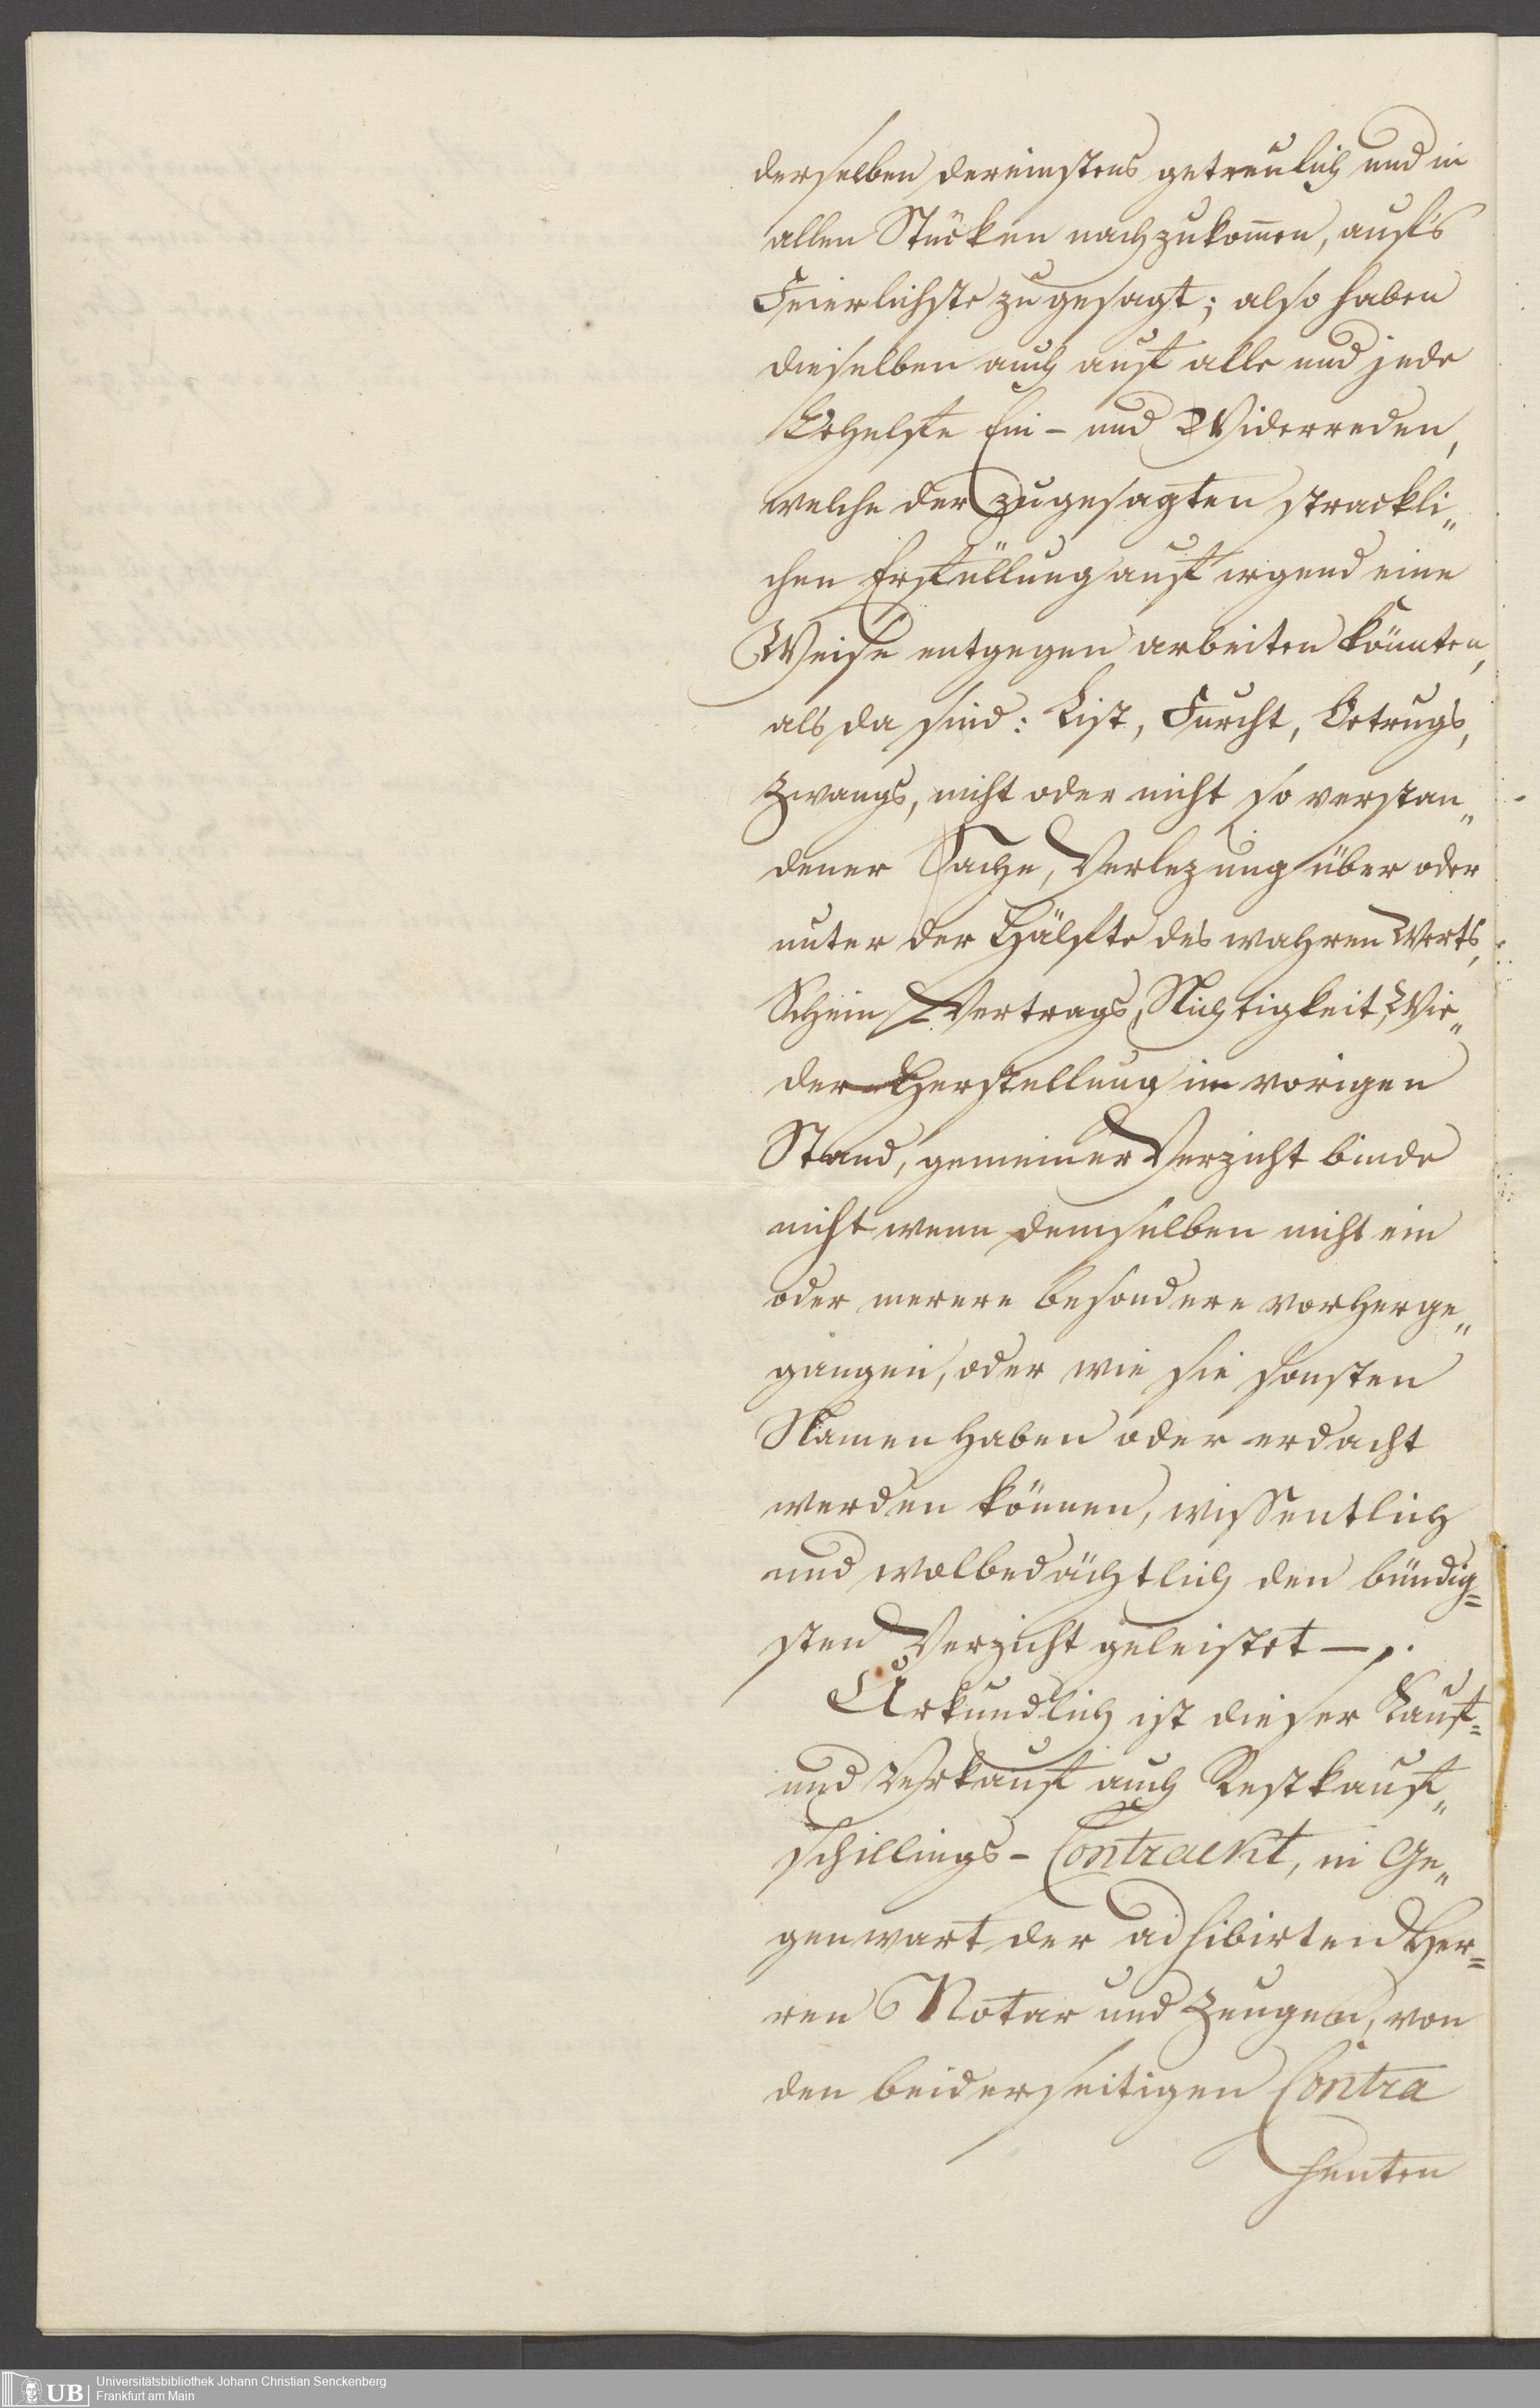 derselben dereinstens getreulich und in
allen Stücken nachzukom̄en, auf's
Feierlichste zugesagt; also haben
dieselben auch auf alle und jede
Behelfe Ein- und Widerreden,
welche der zugesagten strackli„
chen Erfüllung auf irgend eine
Weise entgegen arbeiten könnten,
als da sind: List, Furcht, Betrugs,
Zwangs, nicht oder nicht so verstan„
dener Sache, Verlezung über oder
unter der Hälfte des wahren Werts,
Schein-Vertrags, Nichtigkeit, Wie„
der-Herstellung im vorigen
Stand, gemeiner Verzicht binde
nicht wenn demselben nicht ein
oder merere besondere vorherge„
gangen, oder wie sie sonsten
Namen haben oder erdacht
werden können, wissentlich
und wolbedächtlich den bündig=
sten Verzicht geleistet —.
Urkundlich ist dieser Kauf=
und Verkauf auch Restkauf„
schillings-Contrackt, in Ge„
genwart der adhibirten Her=
ren Notar und Zeugen, von
den beiderseitigen Contra
henten
UB
Universitätsbibliothek Johann Christian Senckenberg
Frankfurt am Main